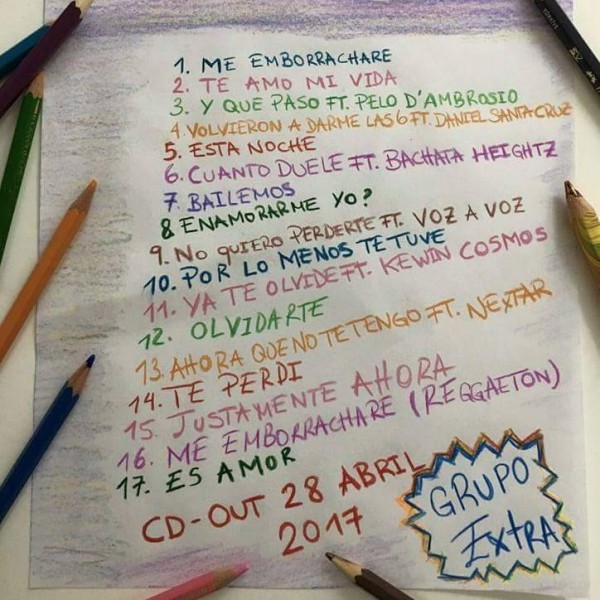 1. ME EMBORRACHARE
2. TE AMO MI VIDA
3. Y QUE PASO FT. PELO D'AMBROSIO
4. VOLVIERON A DARME LAS 6 FT. DANIEL SANTACRUZ
5. ESTA NOCHE
6. CUANTO DUELE FT. BACHATA HEIGHTZ
7. BAILEMOS
8 ENAMORARME YO?
9. NO QUIERO PERDERTE FT. VOZ A VOZ
10. POR LO MENOS TE TUVE
11. YA TE OLVIDE FT. KEWIN COSMOS
12. OLVIDARTE
13. AHORA QUE NO TE TENGO FT. NEXTAR
14. TE PERDI
15. JUSTAMENTE AHORA
16. ME EMBORRACHARE (REGGAETON)
17. ES AMOR
CD-OUT 28 ABRIL
2017
GRUPO
Extra